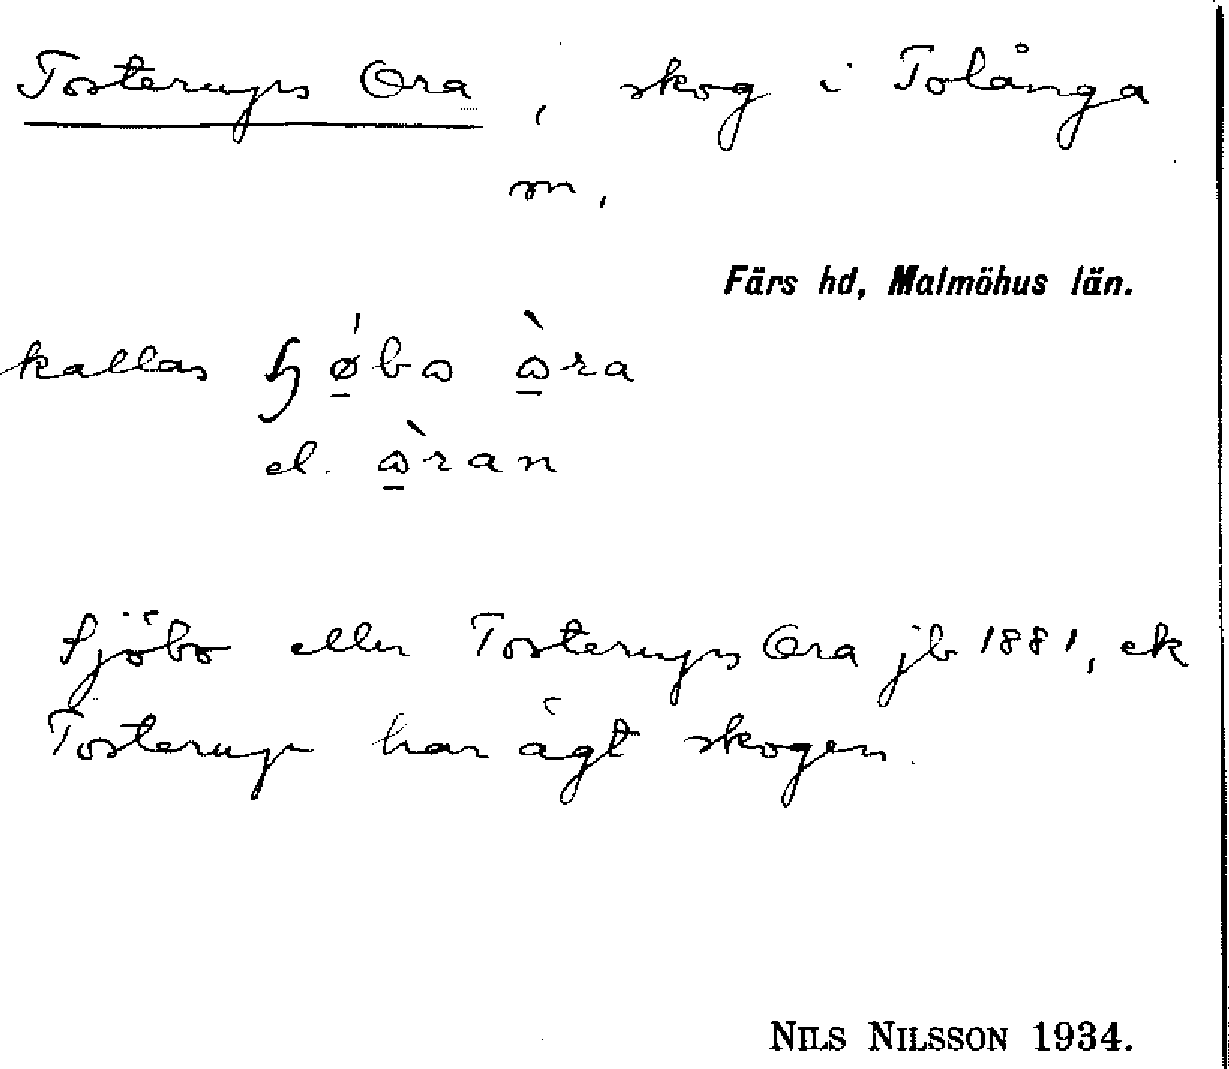 Tosterups Ora, skog i Tolånga
m,
Färs hd, Malmöhus län.
kallas ɧǿ̠bɷ ɷ̠̀ra
el. ɷ̠̀ran
Sjöbo eller Tosterups Ora jb 1881, ek
Tosterup har ägt skogen.
NILS NILSSON 1934.